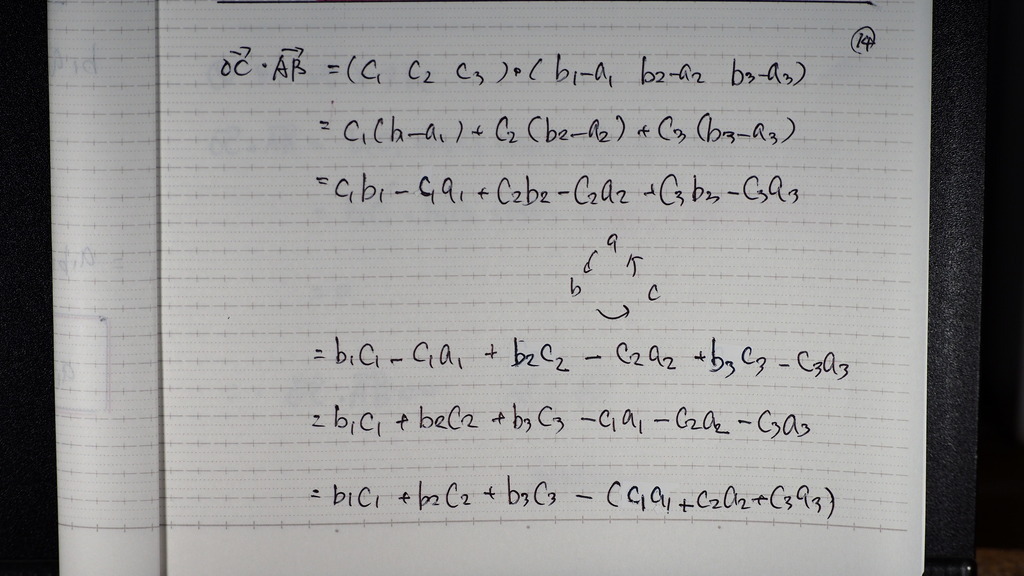 ⑭
→OC · →AB = (C₁ C₂ C₃) • (b₁-a₁ b₂-a₂ b₃-a₃)
= C₁(b₁-a₁) + C₂(b₂-a₂) + C₃(b₃-a₃)
= C₁b₁ - C₁a₁ + C₂b₂ - C₂a₂ + C₃b₃ - C₃a₃
a
b c
= b₁C₁ - C₁a₁ + b₂C₂ - C₂a₂ + b₃C₃ - C₃a₃
= b₁C₁ + b₂C₂ + b₃C₃ - C₁a₁ - C₂a₂ - C₃a₃
= b₁C₁ + b₂C₂ + b₃C₃ - (C₁a₁ + C₂a₂ + C₃a₃)